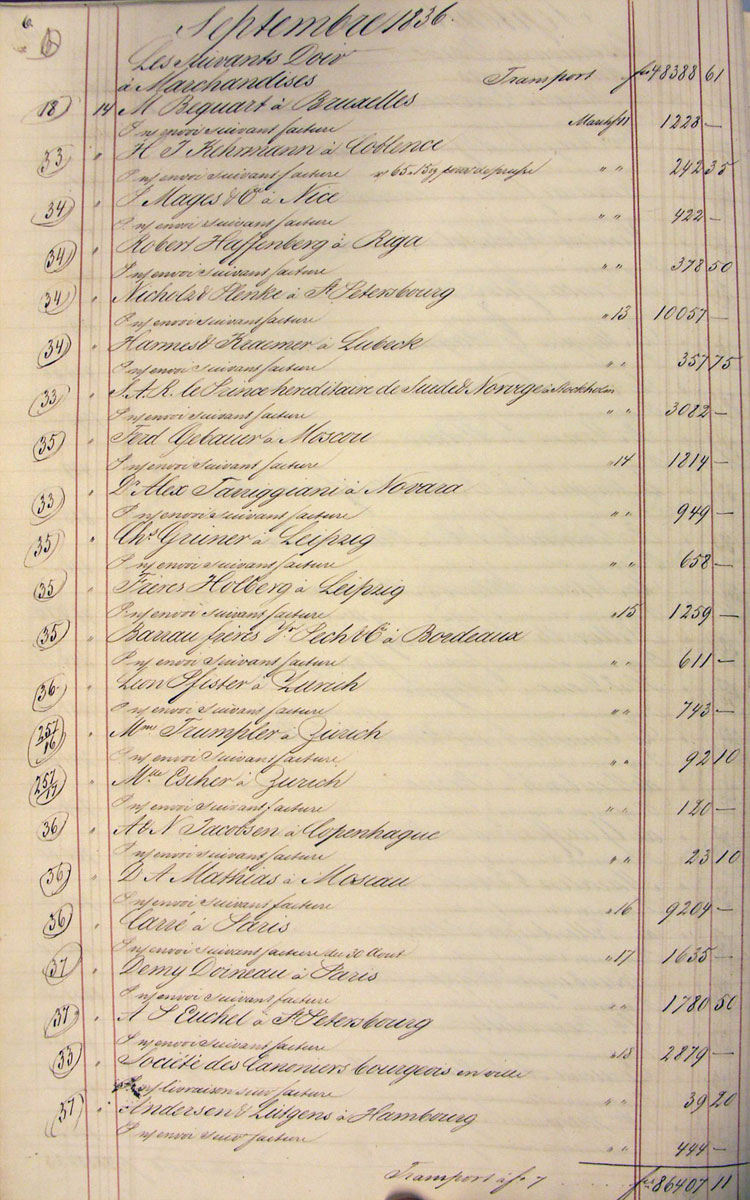 6
6
Septembre 1836.
Les Suivants Doiv
à Marchandises Transport fcs 48388 61
18 14 M Bequart à Bruxelles
P n/ envoi suivant facture March f 11 1223 —
33 " H J Kehrmann à Coblence
P n/ envoi suivant facture " " 242 35
34 " Mages & Co à Nice
P n/ envoi suivant facture " " 422 —
34 " Robert Haffenberg à Riga
P n/ envoi suivant facture " " 378 50
34 " Nicholz & Plenke à St Petersbourg
P n/ envoi suivant facture " 13 10057 —
34 " Harmes & Kraemer à Lubeck
P n/ envoi suivant facture " " 357 75
33 " S. A. R. le Prince hereditaire de Suede & Norvège à Stockholm
P n/ envoi suivant facture " " 3082 —
35 " Ferd Gebauer à Moscou
P n/ envoi suivant facture " 14 1814 —
33 " Dr Alex à Novara
P n/ envoi suivant facture " " 949 —
35 " Chs Gruner à Leipzig
P n/ envoi suivant facture " " 658 —
35 " Frères Holberg à Leipzig
P n/ envoi suivant facture " 15 1259 —
35 " Barrau frères Pech & Co à Bordeaux
P n/ envoi suivant facture " " 611 —
36 " Leon Pfister à Zurich
P n/ envoi suivant facture " " 743 —
257/16 " Mme Trumpler à Zürich
P n/ envoi suivant facture " " 92 10
257/17 " Escher à Zurich
P n/ envoi suivant facture " " 120 —
36 " A & N Jacobsen à Copenhague
P n/ envoi suivant facture " " 23 10
36 " D A Mathias à Moscau
P n/ envoi suivant facture " 16 9204 —
36 " Carré à Paris
P n/ envoi suivant facture du 30 Aout " 17 1635 —
37 " Demy Doineau à Paris
P n/ envoi suivant facture " " 1780 50
37 " A S Euchel à St Petersbourg
P n/ envoi suivant facture " 18 2879 —
33 " Société des Canoniers bourgeois en ville
n/ livraison suiv facture 39 20
37 " Andersen & Lütgens à Hambourg
P n/ envoi suiv facture " " 444 —
Transport à fo 7 fcs 86407 11